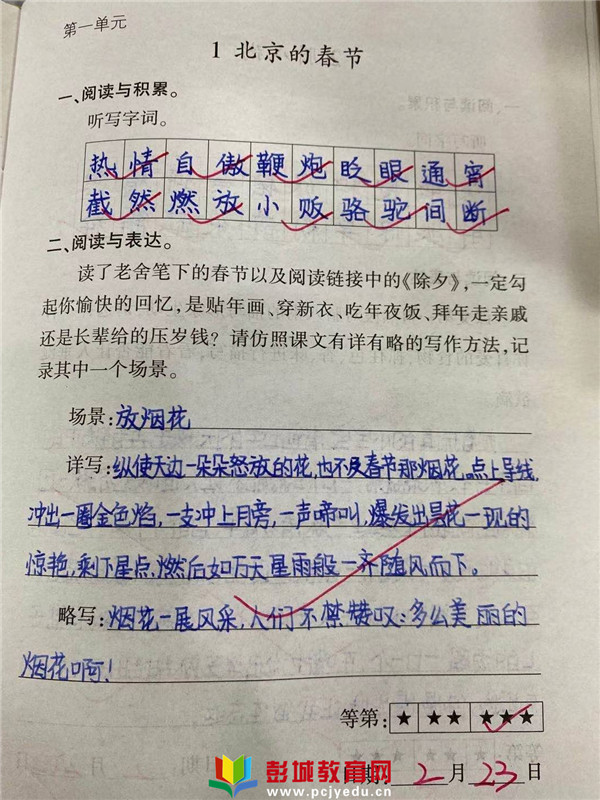 第一单元
1 北京的春节
一、阅读与积累。
听写字词。
热情自傲鞭炮眨眼通宵
截然燃放小贩骆驼间断
二、阅读与表达。
读了老舍笔下的春节以及阅读链接中的《除夕》,一定勾
起你愉快的回忆,是贴年画、穿新衣、吃年夜饭、拜年走亲戚
还是长辈给的压岁钱?请仿照课文有详有略的写作方法,记
录其中一个场景。
场景:放烟花
详写:纵使天边一朵朵怒放的花,也不及春节那烟花。点上导线,
冲出一圈金色焰,一支冲上月旁,一声啼叫,爆发出昙花一现的
惊艳,剩下星点,燃后如万天星雨般一齐随风而下。
略写:烟花一展风采,人们不禁赞叹:多么美丽的
烟花啊!
等第:★ ★★ ★★★
日期: 2月23日
彭城教育网
www.pcjyedu.cn